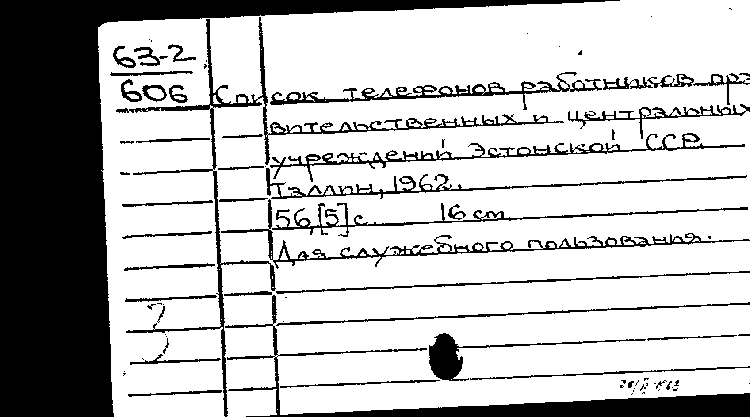 63-2
606
Список телефонов работников пра
вительственных и центральных
учреждений Эстонской ССР.
Таллин, 1962.
56,[5] с. 16 cm
Для служебного пользования.
3